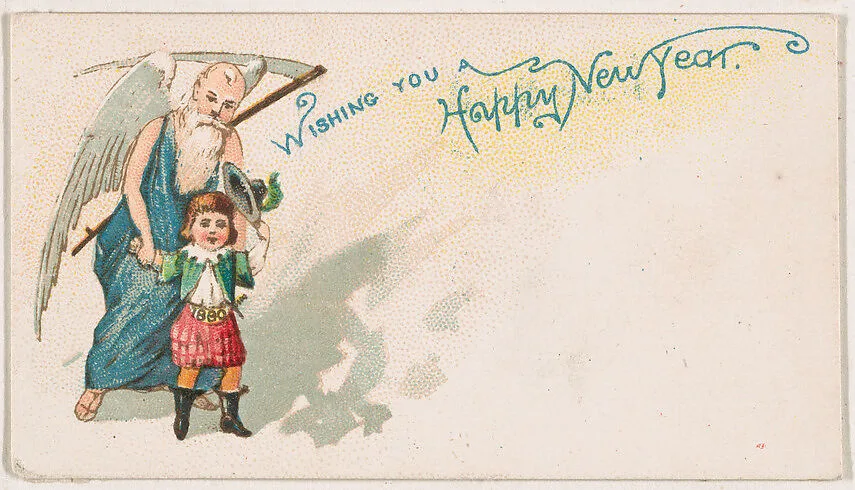 WISHING YOU A
Happy New Year.
1890